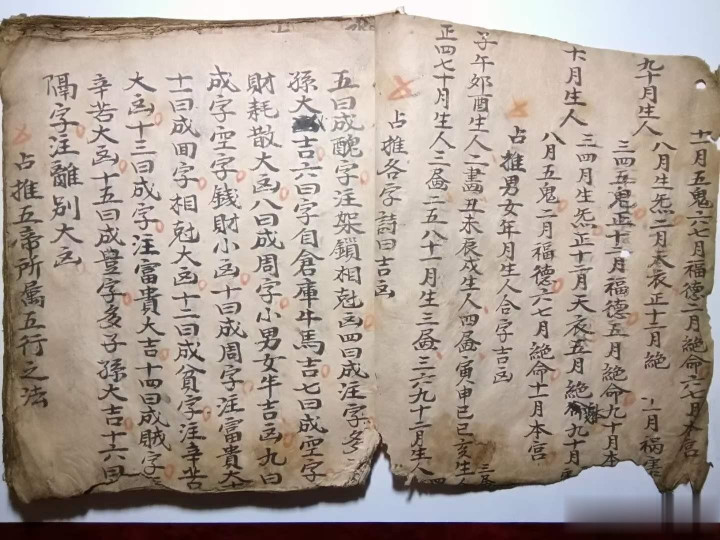 十一月五鬼六七月福德二月絶命六七月本宮
九十月生人
八月生炁二月天衣正十二月絶
二月禍害
三四五鬼正十二月福德五月絶命九十月本
十一月生人
三四月生炁正十二月天衣五月絶命九十月
八月五鬼二月福德六七月絶命十一月本宮
占推男女年月生人合字吉凶
子午卯酉生人二畫丑未辰戌生人四畫寅申巳巳亥生人
三畫
正四七十月生人三畫二五八十一月生三畫三六九十二月生人四
占推各字詩曰吉凶
五曰成醜字注架鎖相尅凶四曰成注字多
孫大吉六曰字自倉庫牛馬吉七曰成空字
財耗散大凶八曰成周字小男女牛吉凶九曰
成字空字錢財小凶十曰成周字注富貴大
十一曰成田字相尅大凶十二曰成貧字注辛苦
大凶十三曰成字注富貴大吉十四曰成賊字
辛苦大凶十五曰成豊字多子孫大吉十六曰
隔字注離別大凶
占推五帝所属五行之法